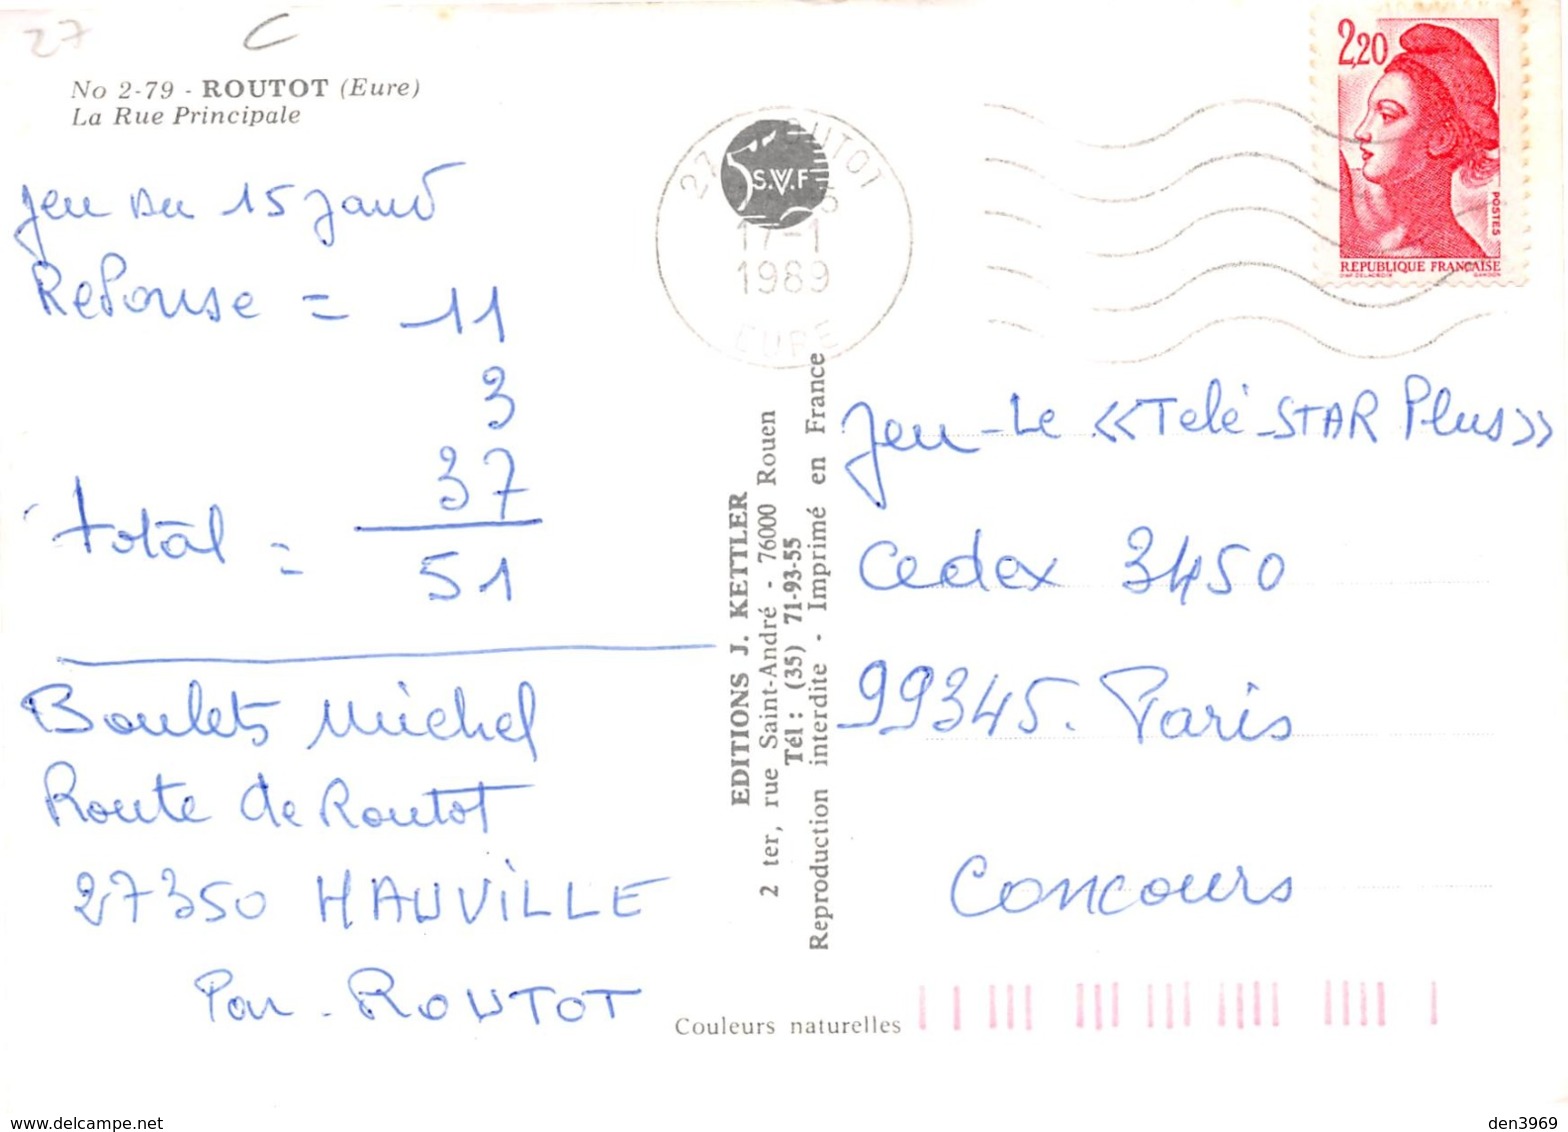 27
C
No 2-79 - ROUTOT (Eure)
La Rue Principale
Jeu du 15 Janv
Reponse = 11
3
37
total = 51
Boulets Michel
Route de Routot
27350 HAUVILLE
Par - ROUTOT
27 ROUTOT
17-1
1989
EURE
S.V.F
EDITIONS J. KETTLER
2 ter, rue Saint-André - 76000 Rouen
Tél : (35) 71-93-55
Reproduction interdite - Imprimé en France
Couleurs naturelles
2,20
POSTES
REPUBLIQUE FRANÇAISE
Jeu - Le «Telé-STAR Plus»
Cedex 3450
99345. Paris
Concours
den3969